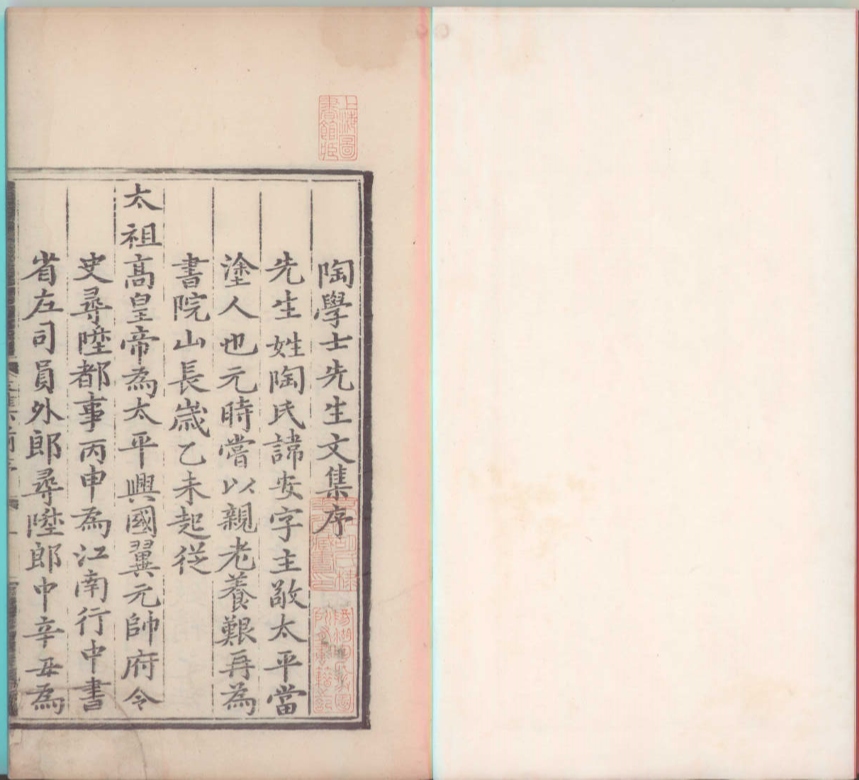 陶學士先生文集序
先生姓陶氏諱安字主敬太平當
塗人也元時嘗以親老養艱再為
書院山長歲乙未起從
太祖高皇帝為太平興國翼元帥府令
史尋陞都事丙申為江南行中書
省左司員外郎尋陞郎中辛丑為
上海圖書館藏